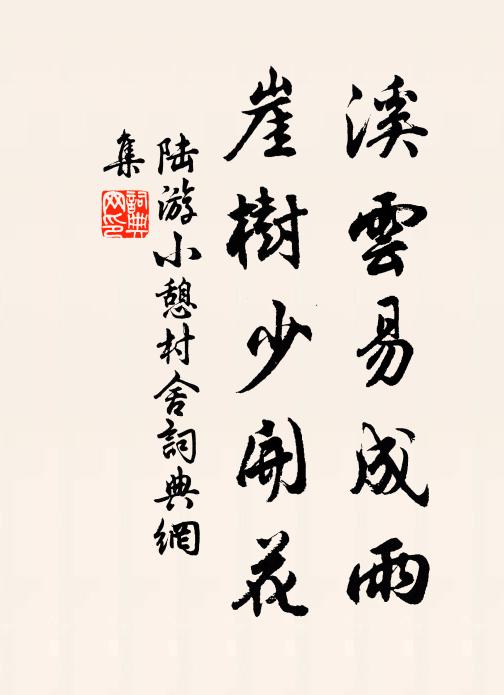 溪雲易成雨
崖樹少開花
陸游小憩村舍詞典網
集
詞典
网印